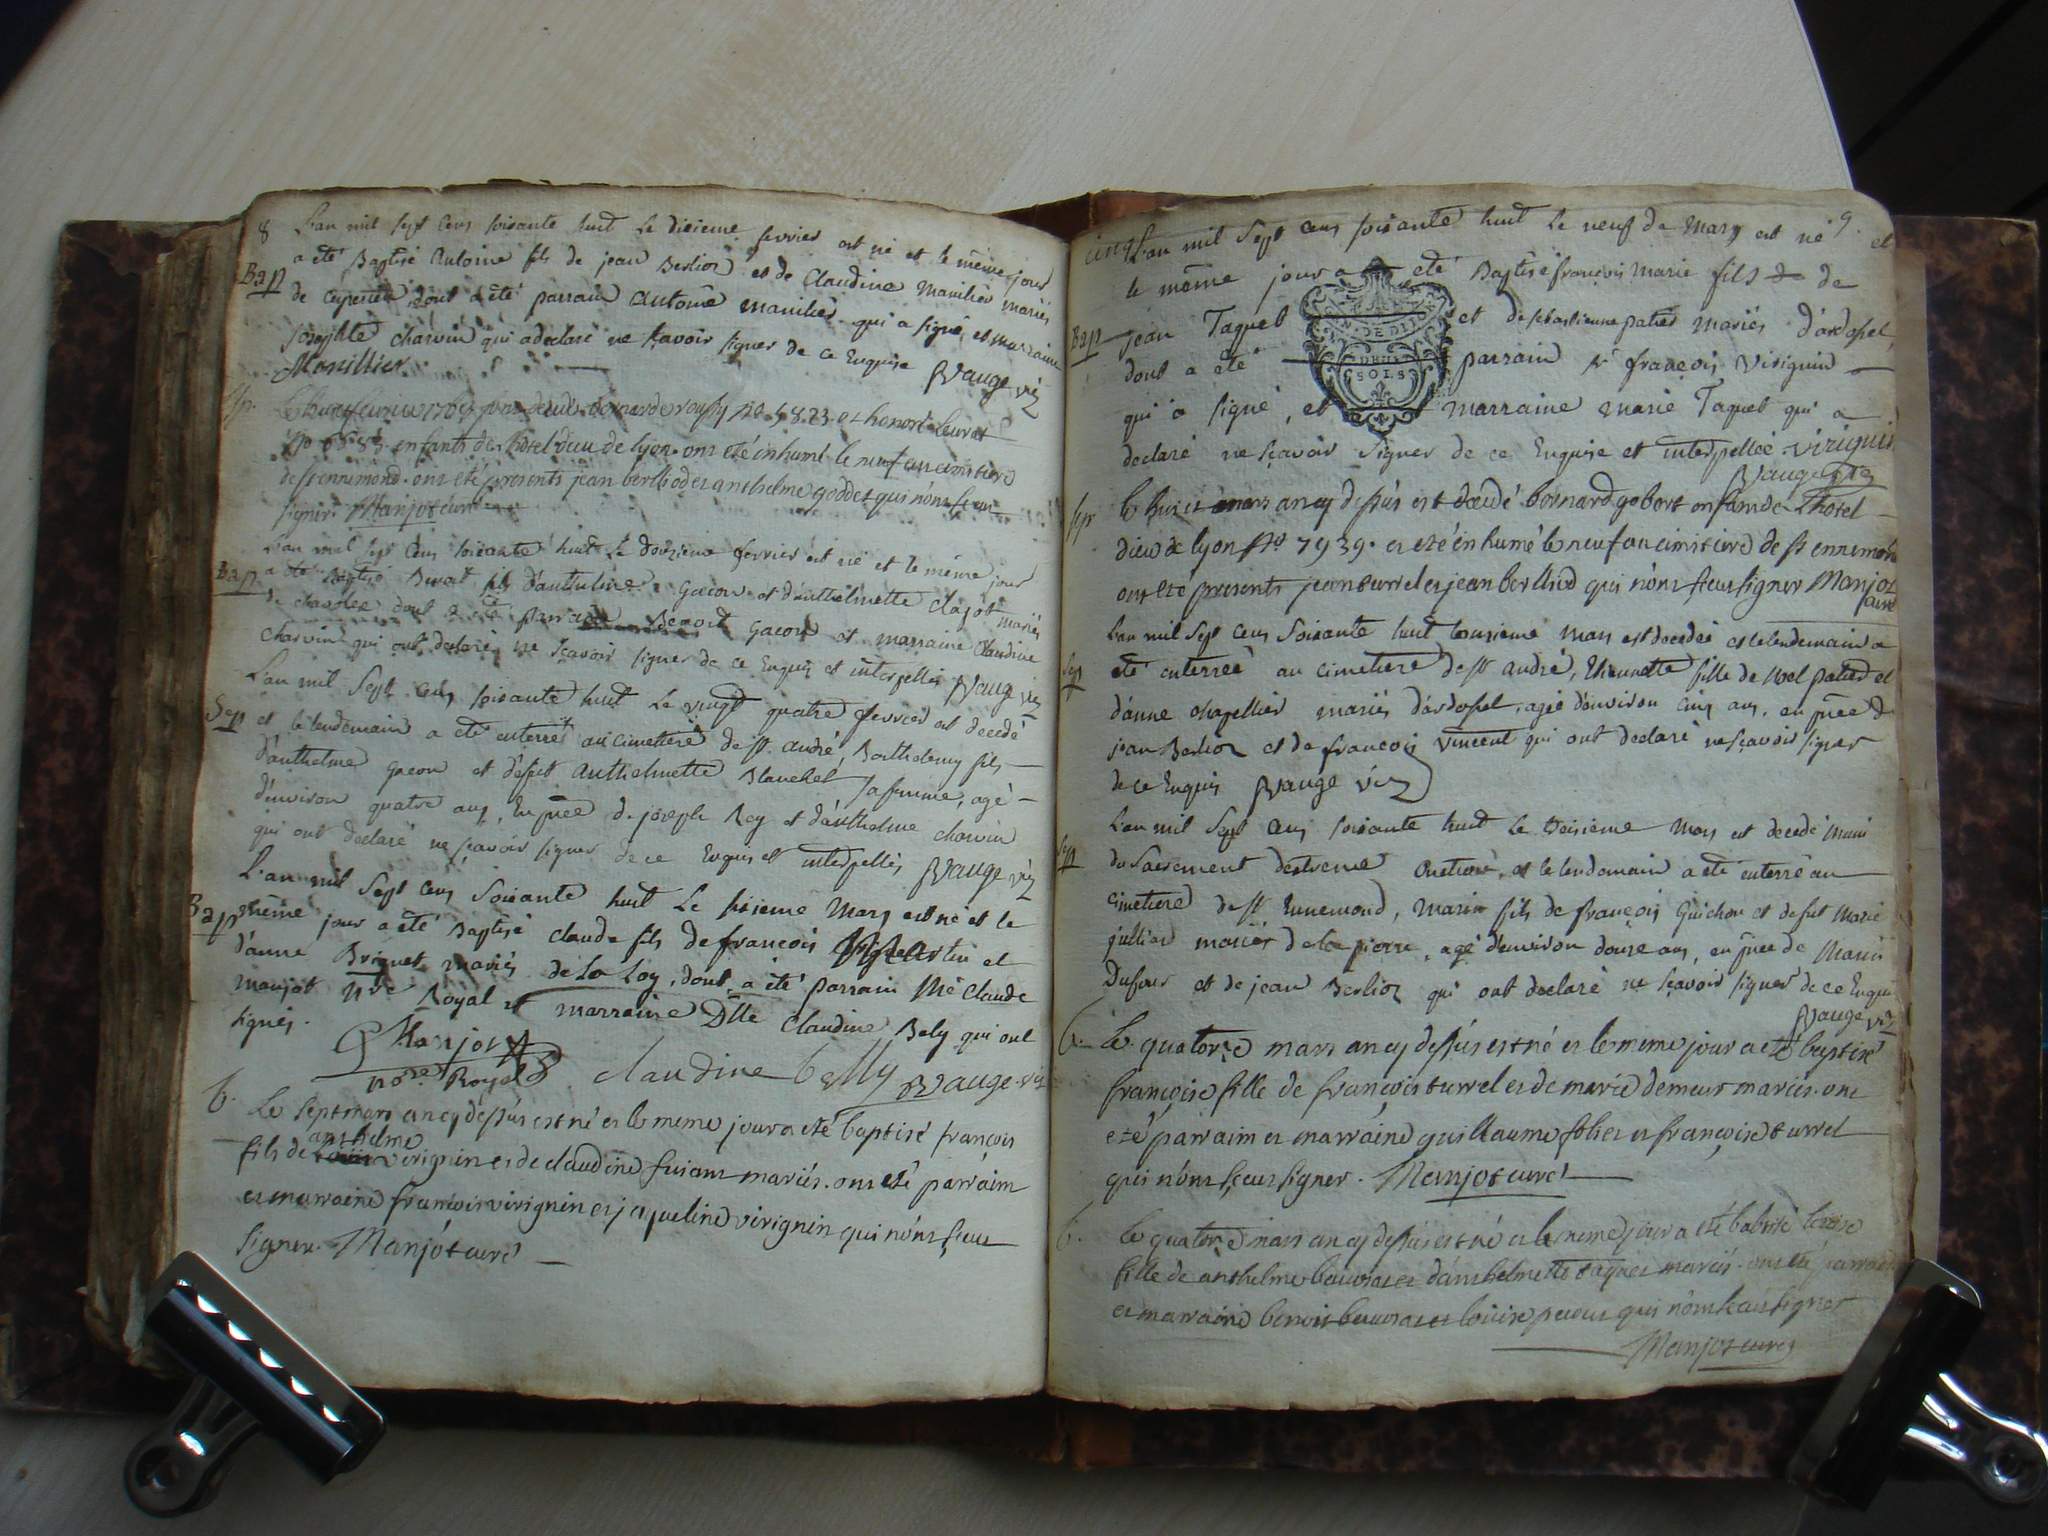 8 L'an mil sept cens soixante huit Le dixieme fevrier est né et le même jour
Bap a été Baptisé Antoine fils de jean Berlioz et de Claudine Manilier mariés
de dont a été parrain antoine manilier qui a signé, et marraine
josephte charvin qui a declaré ne sçavoir signer de ce Enquise Vauge viz
Manillier
Sep. fevrier 1768 sont decedés bernarde no 5823 et honoré
no enfants de l'hotel dieu de lyon. ont été inhumé le neuf au cimitiere
de st ennemond. ont été presents jean berlhod et anthelme goddet qui n'ont sceu
signer. Manjot curé
L'an mil sept cens soixante huit Le douzieme fevrier est né et le même jour
Bap a été Baptisé Benoit fils d'anthelme Gacon et d'anthelmette clajot mariés
de dont a été parrain Benoit Gacon et marraine Claudine
charvin qui ont declaré ne sçavoir signer de ce Enquis et interpellés Vauge viz
L'an mil Sept cens soixante huit Le vingt quatre fevrier est decedé
Sep et le lendemain a été enterré au cimetiere de st. andré, Barthelemy fils
d'anthelme Gacon et defut anthelmette Blanchet sa femme, agé
d'environ quatre ans, En pñce de joseph Rey et d'anthelme charvin
qui ont declaré ne sçavoir signer de ce Enquis et interpellés Vauge viz
L'an mil Sept cens Soixante huit Le sixieme Mars est né et le
Bap même jour a été Baptisé claude fils de francois et
d'anne Briquet mariés de La Loy, dont a été parrain Me Claude
manjot Nre Royal et marraine Dlle Claudine Bely qui ont
signés.
Manjot
nore Royal claudine belly Vauge viz
b. Le sept mars an cy dessus est né et le meme jour a eté baptisé françois
anthelme
fils de virignin et de claudine mariés. ont eté parraim
et marraine francois virignin et jaqueline virignin qui n'ont sceu
signer. Manjot curé
cinq L'an mil Sept cens soixante huit Le neuf de Mars est né 9. et
le même jour a été Baptisé françois marie fils de de
Bap jean Taquet et de sebastienne patier mariés d'ardosset,
DEUX
SOLS
dont a été parrain sr françois Virignin
qui a signé, et marraine marie Taquet qui a
declaré ne sçavoir signer de ce Enquise et interpellée. virignin
Vauge viz
Sep le huit mars an cy dessus est decedé bernard gobert enfam de l'hotel
dieu de lyon no 7939. et eté inhumé le neuf au cimitiere de st ennemond
ont eté presents jean turrel et jean berlhod qui n'ont sceu signer Manjot
curé
L'an mil Sept cens Soixante huit mars est decedée et le lendemain a
Sep été enterrée au cimetiere de st andré, Etiennette fille de Noel patier et
d'anne chapellier mariés d'ardosset, agée d'environ cinq ans, en pñce de
jean Berlioz et de françois vincent qui ont declaré ne sçavoir signer
de ce Enquis Vauge viz
L'an mil Sept cens soixante huit Le treisieme Mars est decedé muni
Sep du Sacrement d'extreme onction, et le lendemain a été enterré au
cimetiere de st Ennemond, Marin fils de françois Guichon et defut Marie
julliard mariés de la pierre, agé d'environ douze ans, en pñce de Marin
Dufour et de jean Berlioz qui ont declaré ne sçavoir signer de ce Enquis
Vauge viz
b. Le quatorze mars an cy dessus est né et le meme jour a eté baptisé
françoise fille de françois turrel et de marie demeur mariés. ont
eté parraim et marraine guillaume folliet et françoise turrel
qui n'ont sceu signer. Manjot curé
b. Le quatorze mars an cy dessus est né et le meme jour a eté babtisé louise
fille de anthelme et d'anthelmette taquet mariés. ont eté parraim
et marraine benoit et louise qui n'ont sceu signer
Manjot curé